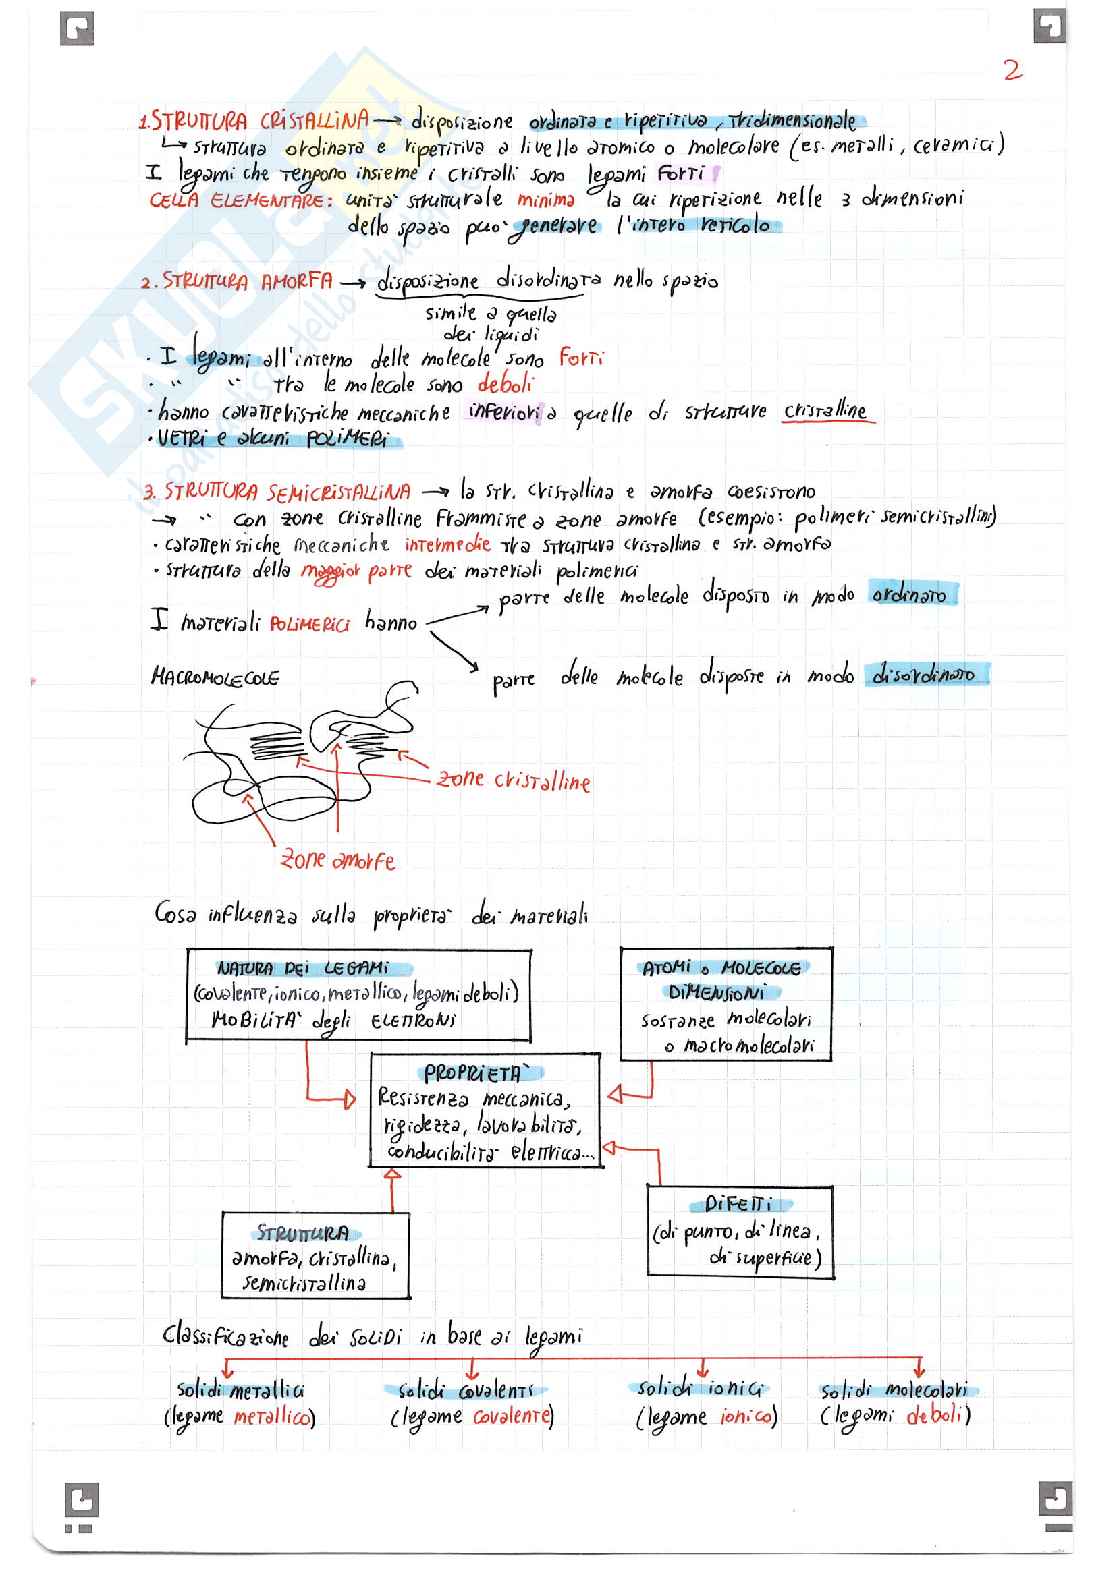 2
1. STRUTTURA CRISTALLINA → disposizione ordinata e ripetitiva, tridimensionale
↳ struttura ordinata e ripetitiva a livello atomico o molecolare (es. metalli, ceramici)
I legami che tengono insieme i cristalli sono legami forti!
CELLA ELEMENTARE: unità strutturale minima la cui ripetizione nelle 3 dimensioni
dello spazio può generare l'intero reticolo
2. STRUTTURA AMORFA → disposizione disordinata nello spazio
simile a quella
dei liquidi
· I legami all'interno delle molecole sono forti
· " " tra le molecole sono deboli
· hanno caratteristiche meccaniche inferiori a quelle di strutture cristalline
· VETRI e alcuni POLIMERI
3. STRUTTURA SEMICRISTALLINA → la str. cristallina e amorfa coesistono
→ " con zone cristalline frammiste a zone amorfe (esempio: polimeri semicristallini)
· caratteristiche meccaniche intermedie tra struttura cristallina e str. amorfa
· struttura della maggior parte dei materiali polimerici
I materiali POLIMERICI hanno
parte delle molecole disposto in modo ordinato
parte delle molecole disposte in modo disordinato
MACROMOLECOLE
zone cristalline
zone amorfe
Cosa influenza sulla proprietà dei materiali
NATURA DEI LEGAMI
(covalente, ionico, metallico, legami deboli)
MOBILITÀ degli ELETTRONI
ATOMI o MOLECOLE
DIMENSIONI
sostanze molecolari
o macromolecolari
PROPRIETÀ
Resistenza meccanica,
rigidezza, lavorabilità,
conducibilità elettrica...
STRUTTURA
amorfa, cristallina,
semicristallina
DIFETTI
(di punto, di linea,
di superficie)
Classificazione dei SOLIDI in base ai legami
solidi metallici
(legame metallico)
solidi covalenti
(legame covalente)
solidi ionici
(legame ionico)
solidi molecolari
(legami deboli)
SKUOLA.net
il paradiso dello studente